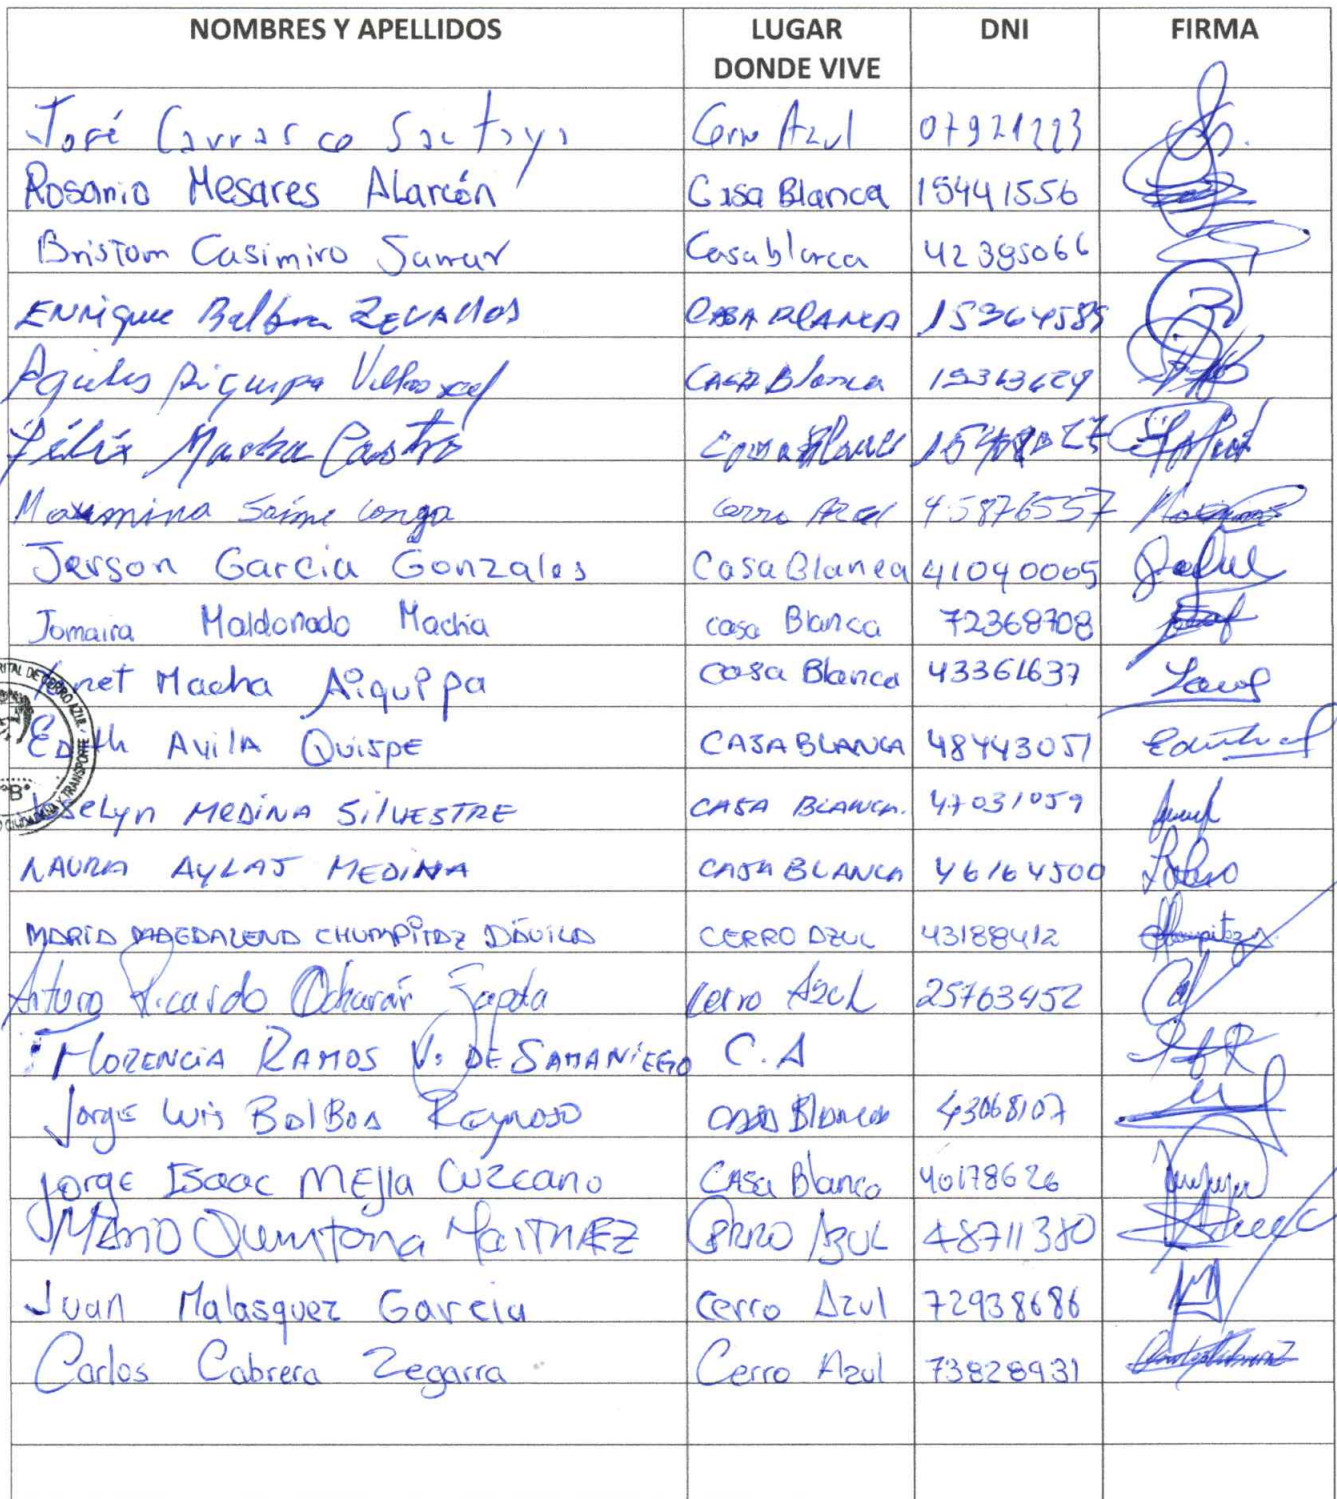 NOMBRES Y APELLIDOS LUGAR DONDE VIVE DNI FIRMA
José Carrasco Cerro Azul 07921223
Rosario Mesares Alarcón Casa Blanca 15441556
Bristom Casimiro Casablanca 42385066
ENRique Balboa ZEVALLOS CASA BLANCA 15364585
Aiquipa CASA Blanca 15363629
Félix Macha Castro Blanca
Maximina Conga Cerro Azul 45876557
Jerson Garcia Gonzales Casa Blanca 41040005
Jomaira Maldonado Macha casa Blanca 72368708
Macha Aiquipa casa Blanca 43361637
EDith AvilA QuispE CASA BLANCA 48443051
MEDINA SILVESTRE CASA BLANCA. 47031059
LAURA AYLAS MEDINA CASA BLANCA 46164500
MARIA MAGDALENA CHUMPITAZ DÁVILA CERRO AZUL 43188412
Arturo Ricardo Ocharán Zapata Cerro Azul 25763452
FLORENCIA RAMOS V. DE SAMANIEGO C.A
Jorge Luis BalBoa Reynoso CASA Blanca 43068107
Jorge Isaac MEJIa Cuzcano CASa Blanca 40178626
MARIO Quintana MaRTINEZ CERRO AZUL 48711380
Juan Malasquez Garcia Cerro Azul 72938686
Carlos Cabrera Zegarra Cerro Azul 73828931